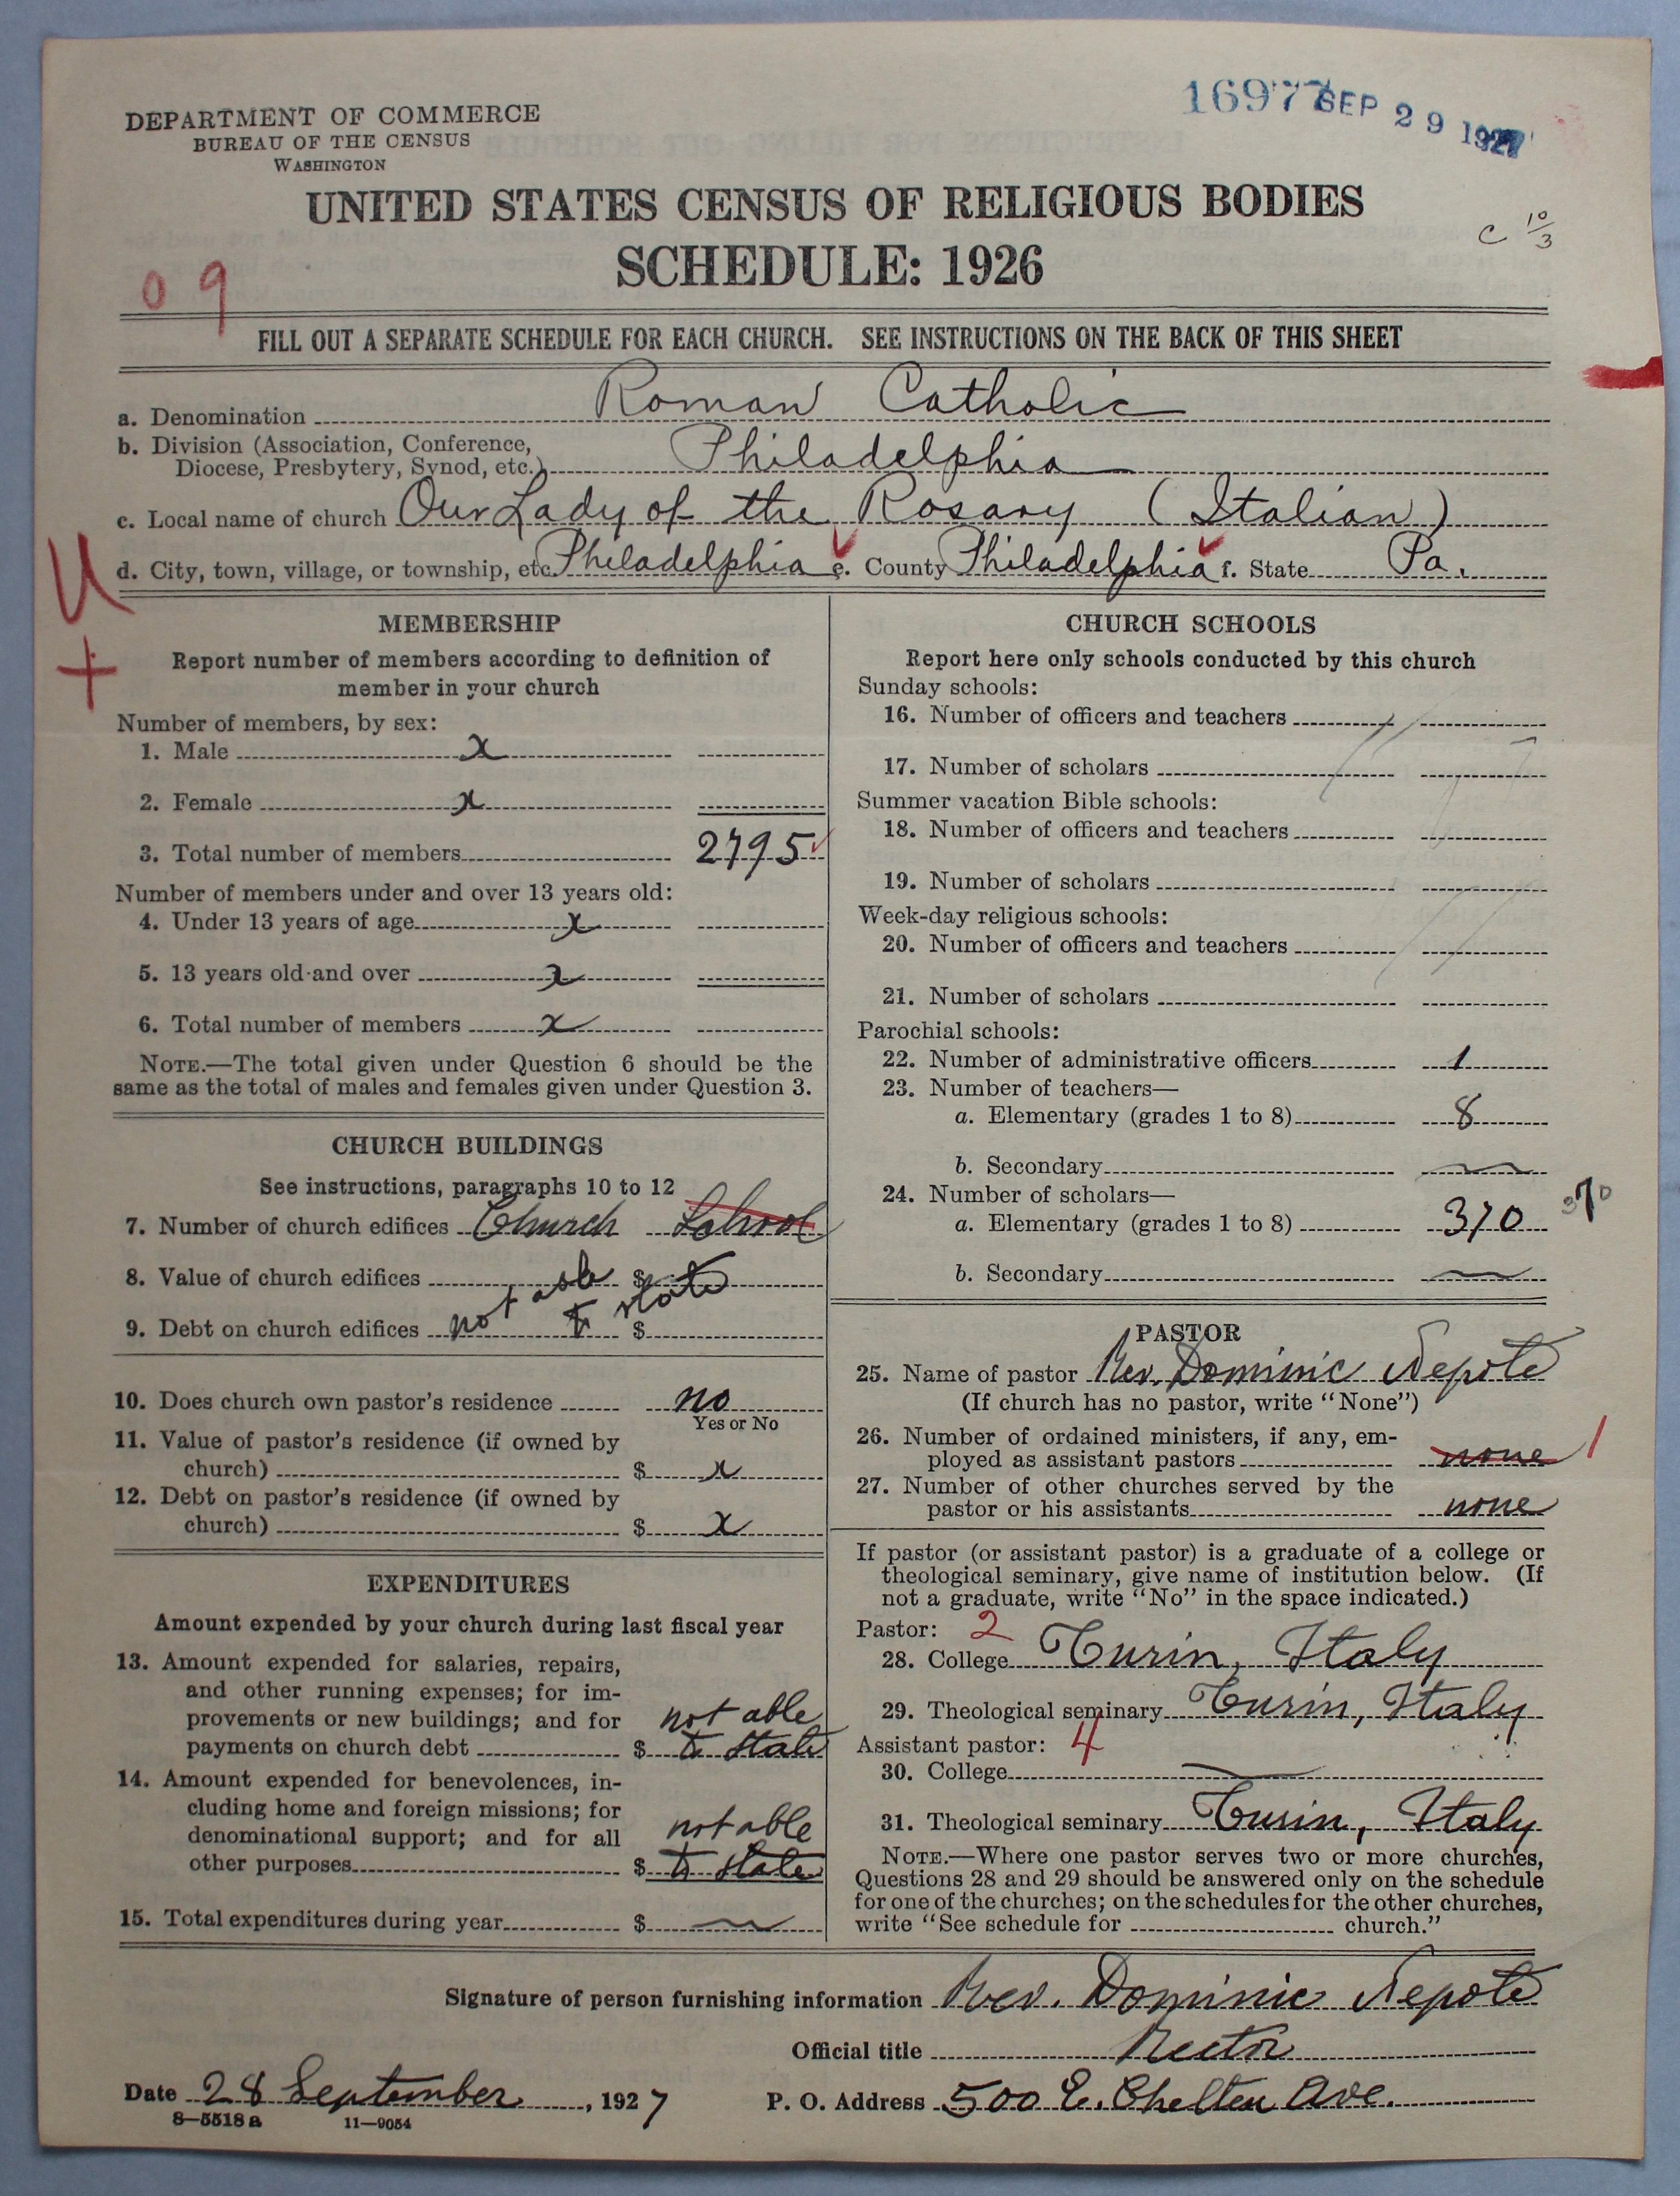 16977 SEP 29 1927
DEPARTMENT OF COMMERCE
BUREAU OF THE CENSUS
WASHINGTON
UNITED STATES CENSUS OF RELIGIOUS BODIES
SCHEDULE: 1926
C 10/3
09
FILL OUT A SEPARATE SCHEDULE FOR EACH CHURCH. SEE INSTRUCTIONS ON THE BACK OF THIS SHEET
a. Denomination Roman Catholic
b. Division (Association, Conference,
Diocese, Presbytery, Synod, etc.) Philadelphia
c. Local name of church Our Lady of the Rosary (Italian)
d. City, town, village, or township, etc. Philadelphia e. County Philadelphia f. State Pa.
U
+
MEMBERSHIP
Report number of members according to definition of
member in your church
Number of members, by sex:
1. Male x
2. Female x
3. Total number of members 2795
Number of members under and over 13 years old:
4. Under 13 years of age x
5. 13 years old and over x
6. Total number of members x
NOTE.—The total given under Question 6 should be the
same as the total of males and females given under Question 3.
CHURCH BUILDINGS
See instructions, paragraphs 10 to 12
7. Number of church edifices Church School
8. Value of church edifices $
9. Debt on church edifices not able to state $
10. Does church own pastor's residence no
Yes or No
11. Value of pastor's residence (if owned by
church) $ x
12. Debt on pastor's residence (if owned by
church) $ x
EXPENDITURES
Amount expended by your church during last fiscal year
13. Amount expended for salaries, repairs,
and other running expenses; for im-
provements or new buildings; and for not able
payments on church debt $ to state
14. Amount expended for benevolences, in-
cluding home and foreign missions; for
denominational support; and for all not able
other purposes $ to state
15. Total expenditures during year $
CHURCH SCHOOLS
Report here only schools conducted by this church
Sunday schools:
16. Number of officers and teachers
17. Number of scholars
Summer vacation Bible schools:
18. Number of officers and teachers
19. Number of scholars
Week-day religious schools:
20. Number of officers and teachers
21. Number of scholars
Parochial schools:
22. Number of administrative officers 1
23. Number of teachers—
a. Elementary (grades 1 to 8) 8
b. Secondary
24. Number of scholars—
a. Elementary (grades 1 to 8) 370 370
b. Secondary
PASTOR
25. Name of pastor Rev. Dominic Nepote
(If church has no pastor, write "None")
26. Number of ordained ministers, if any, em-
ployed as assistant pastors none 1
27. Number of other churches served by the
pastor or his assistants none
If pastor (or assistant pastor) is a graduate of a college or
theological seminary, give name of institution below. (If
not a graduate, write "No" in the space indicated.)
Pastor: 2
28. College Turin, Italy
29. Theological seminary Turin, Italy
Assistant pastor: 4
30. College
31. Theological seminary Turin, Italy
NOTE.—Where one pastor serves two or more churches,
Questions 28 and 29 should be answered only on the schedule
for one of the churches; on the schedules for the other churches,
write "See schedule for church."
Signature of person furnishing information Rev. Dominic Nepote
Official title Rector
Date 28 September, 1927 P. O. Address 500 E. Chelten Ave.
8—5518 a 11—9054